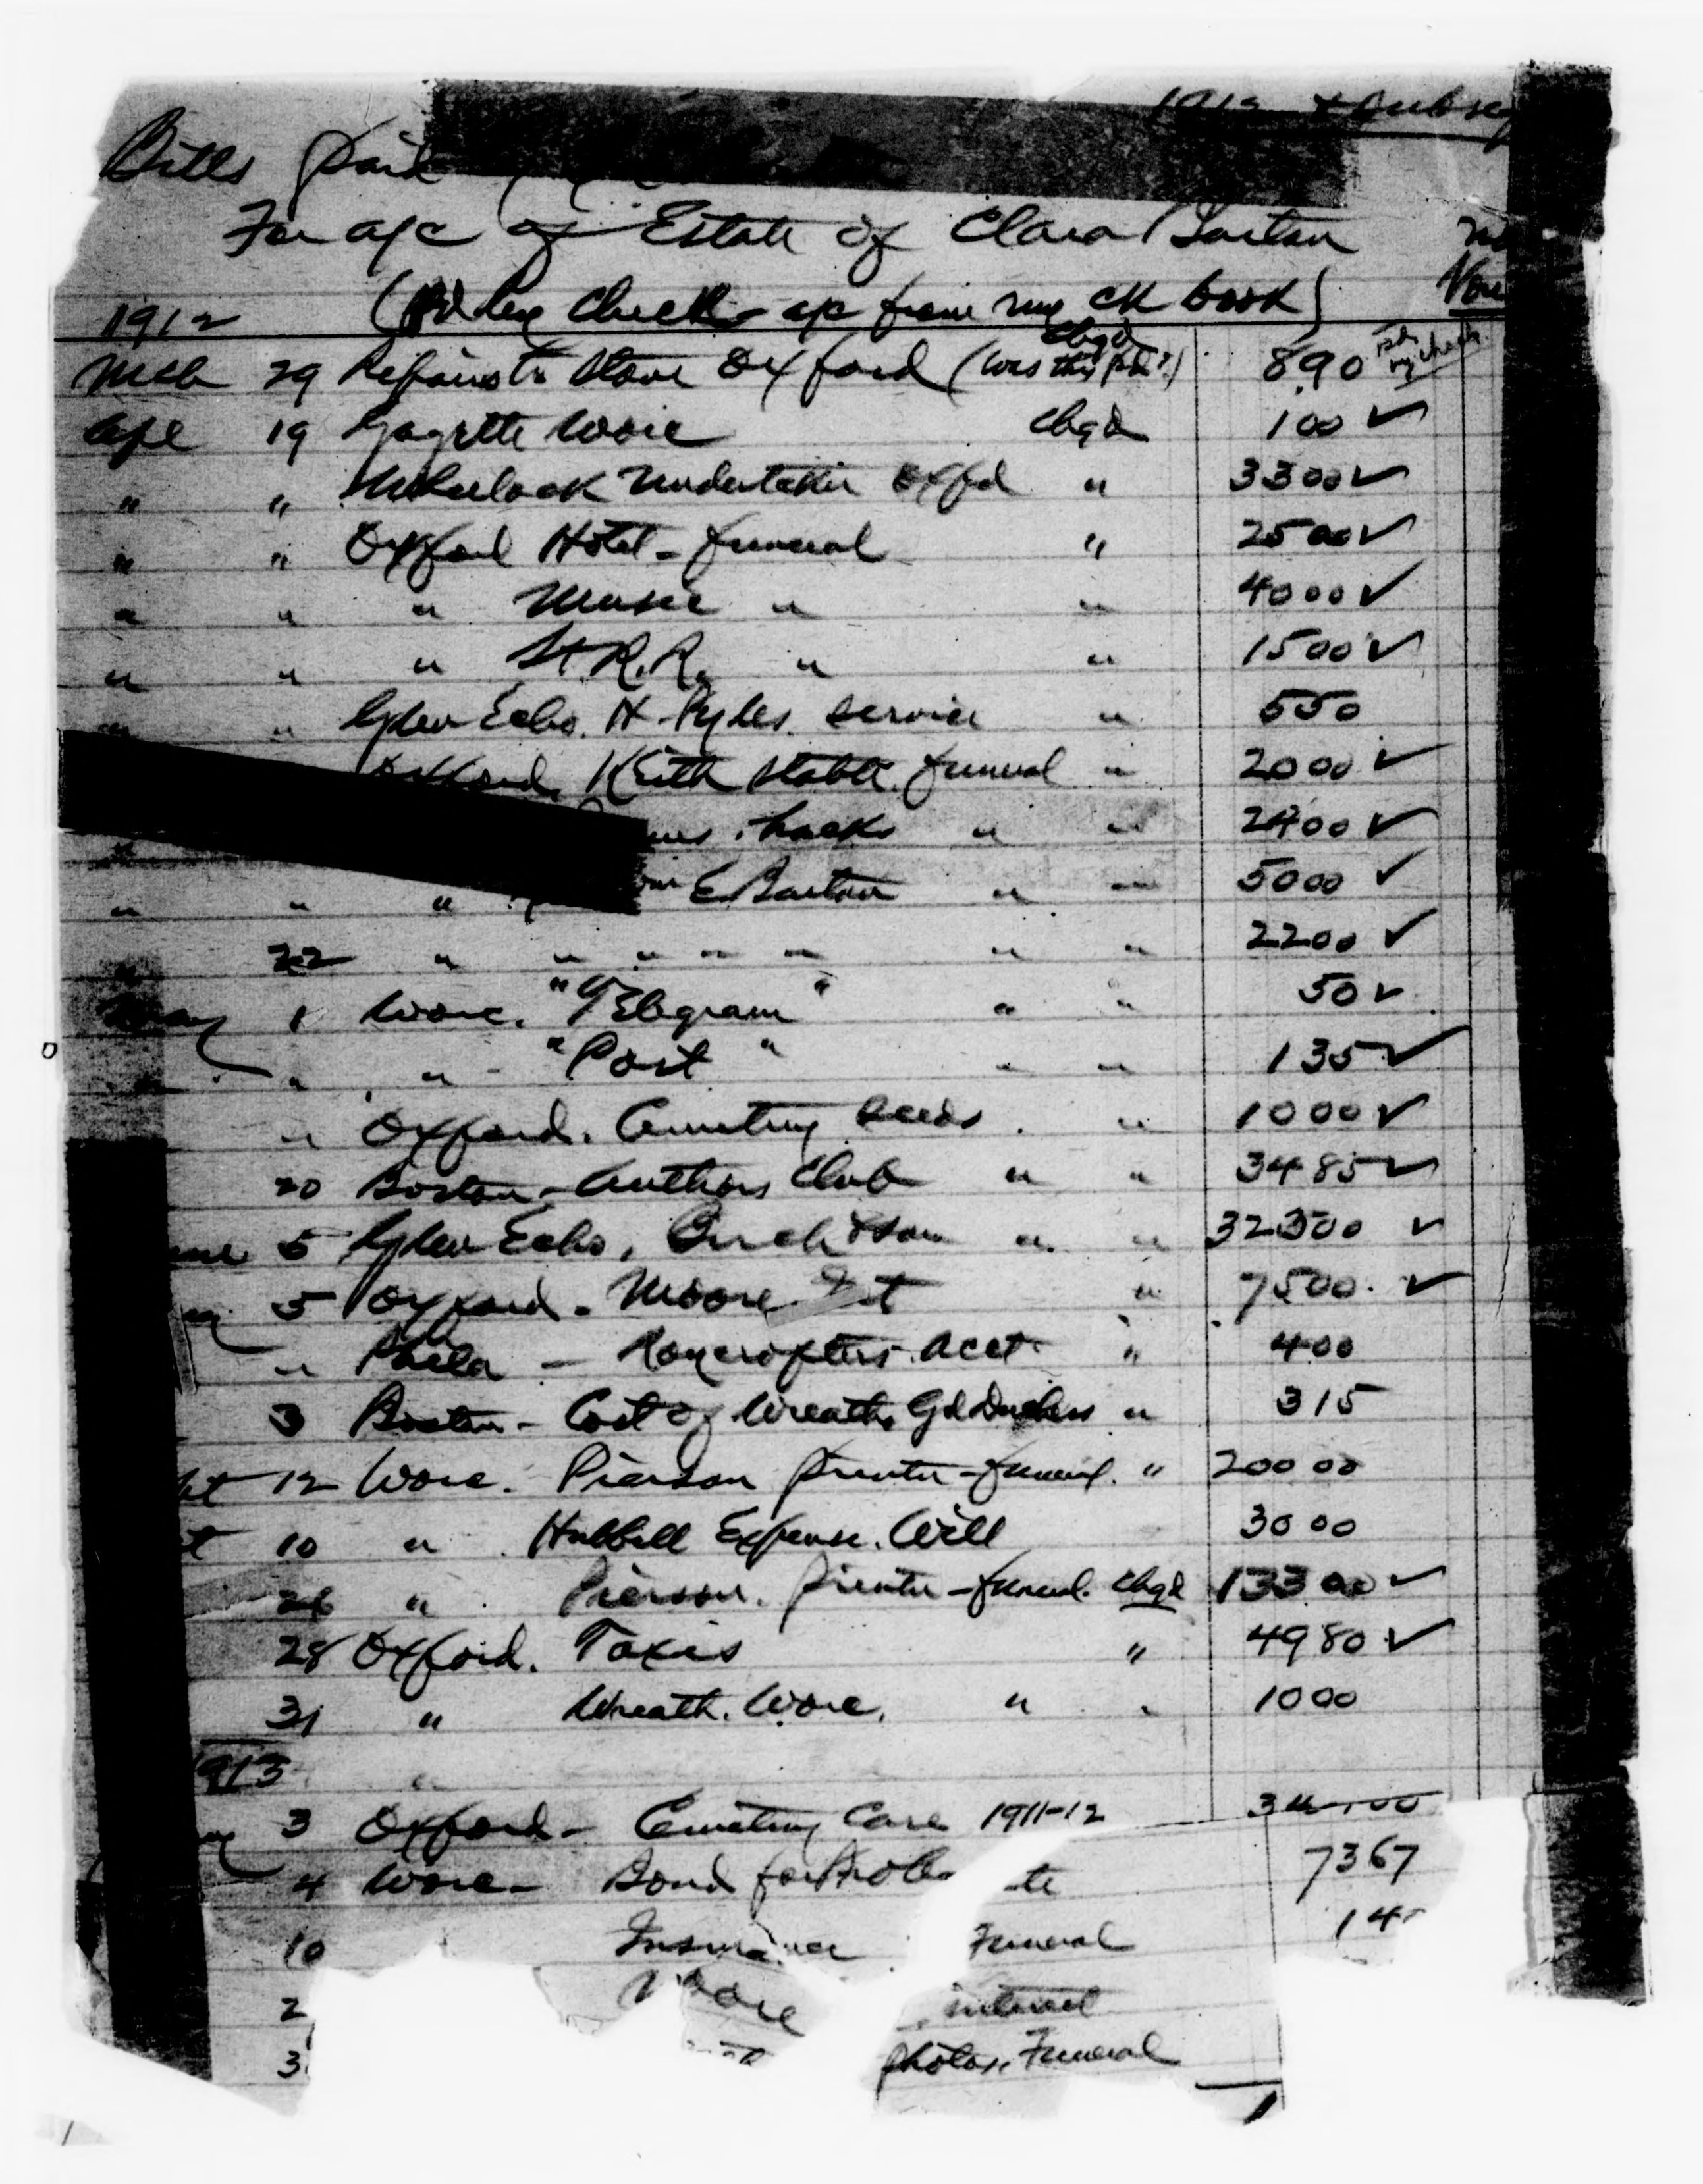 1912 & Subseq
Bills paid
For a/c of Estate of Clara Barton
(Pd by Check - as from my ck book)
1912
Mch 29 Repairs to Stove Oxford (was this pd?) Chgd 890 pd my check
Apl 19 Gazette Worc Chgd 100 ✓
" " Wheelock Undertaker Oxfd " 3300 ✓
" " Oxford Hotel - funeral " 2500 ✓
" " " Music " " 4000 ✓
" " " St. R.R. " " 1500 ✓
" " Glen Echo. H. Pyles. service " 550
Oxford. Keith Stable. funeral " 2000 ✓
hacks " " 2400 ✓
" " " E Barton " " 5000 ✓
" 22 " " " " " " " 2200 ✓
May 1 Worc. "Telegram" " " 50 ✓
" " " "Post" " " 135 ✓
" Oxford. Cemetery deeds. " 1000 ✓
20 Boston - Authors Club " " 3485 ✓
une 5 Glen Echo, Burch & Son " " 32300 ✓
5 Oxford - Moore " 7500. ✓
" Phila - Roycrofters. acct. " 400
3 Boston - Cost of Wreath, Gd Duchess " 315
pt 12 Worc. Pierson printer - funeral. " 20000
t 10 " Hubbell Expense. Will 3000
26 " Pierson. printer - funeral. Chgd 13300 ✓
28 Oxford. Taxes " 4980 ✓
31 " Wreath. Worc. " " 1000
1913
3 Oxford - Cemetery Care 1911-12
4 Worc - Bond for Probate 7367
10 Insurance Funeral 14
2
3 photos, Funeral